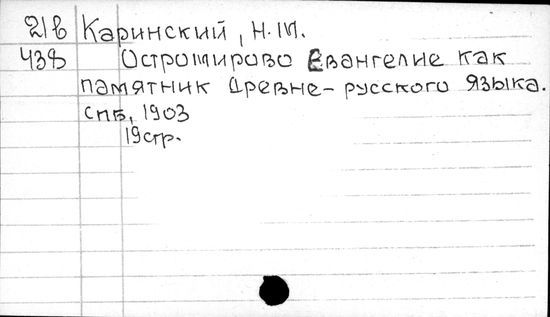 21в Каринский, Н.М.
438 Остромирово Евангелие как
памятник древне-русского языка.
СПБ, 1903
19стр.